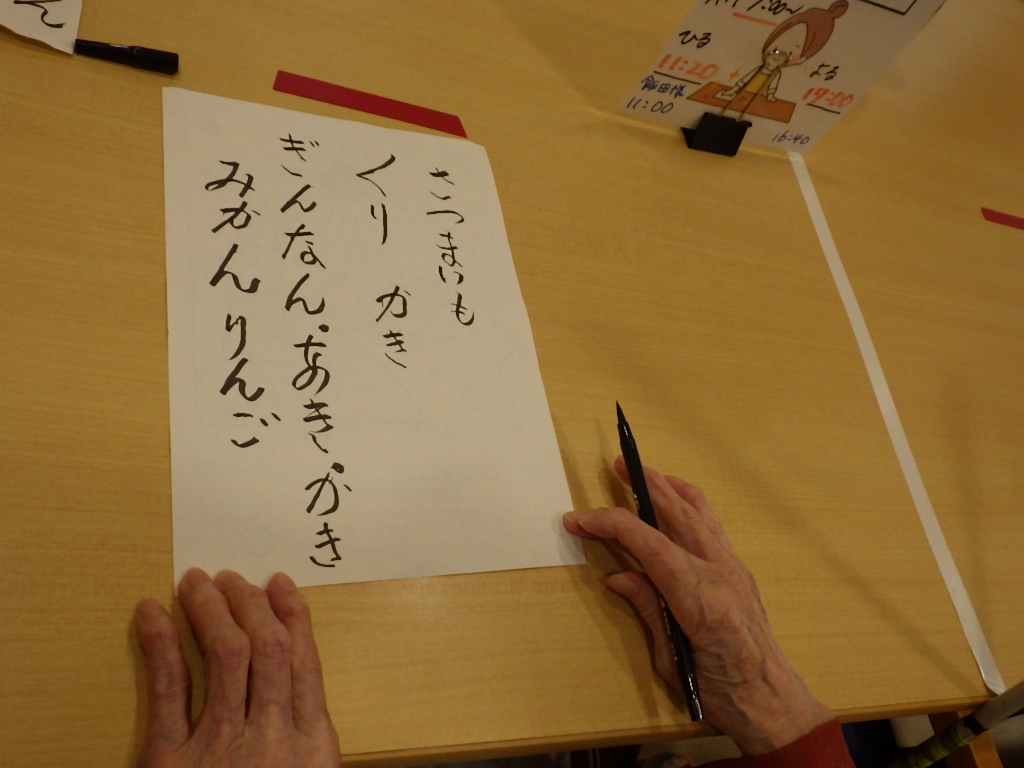 さつまいも
くり　かき
ぎんなん・あき・がき
みかん　りんご
7:00〜
ひる
11:20
11:00
よる
17:00
16:40